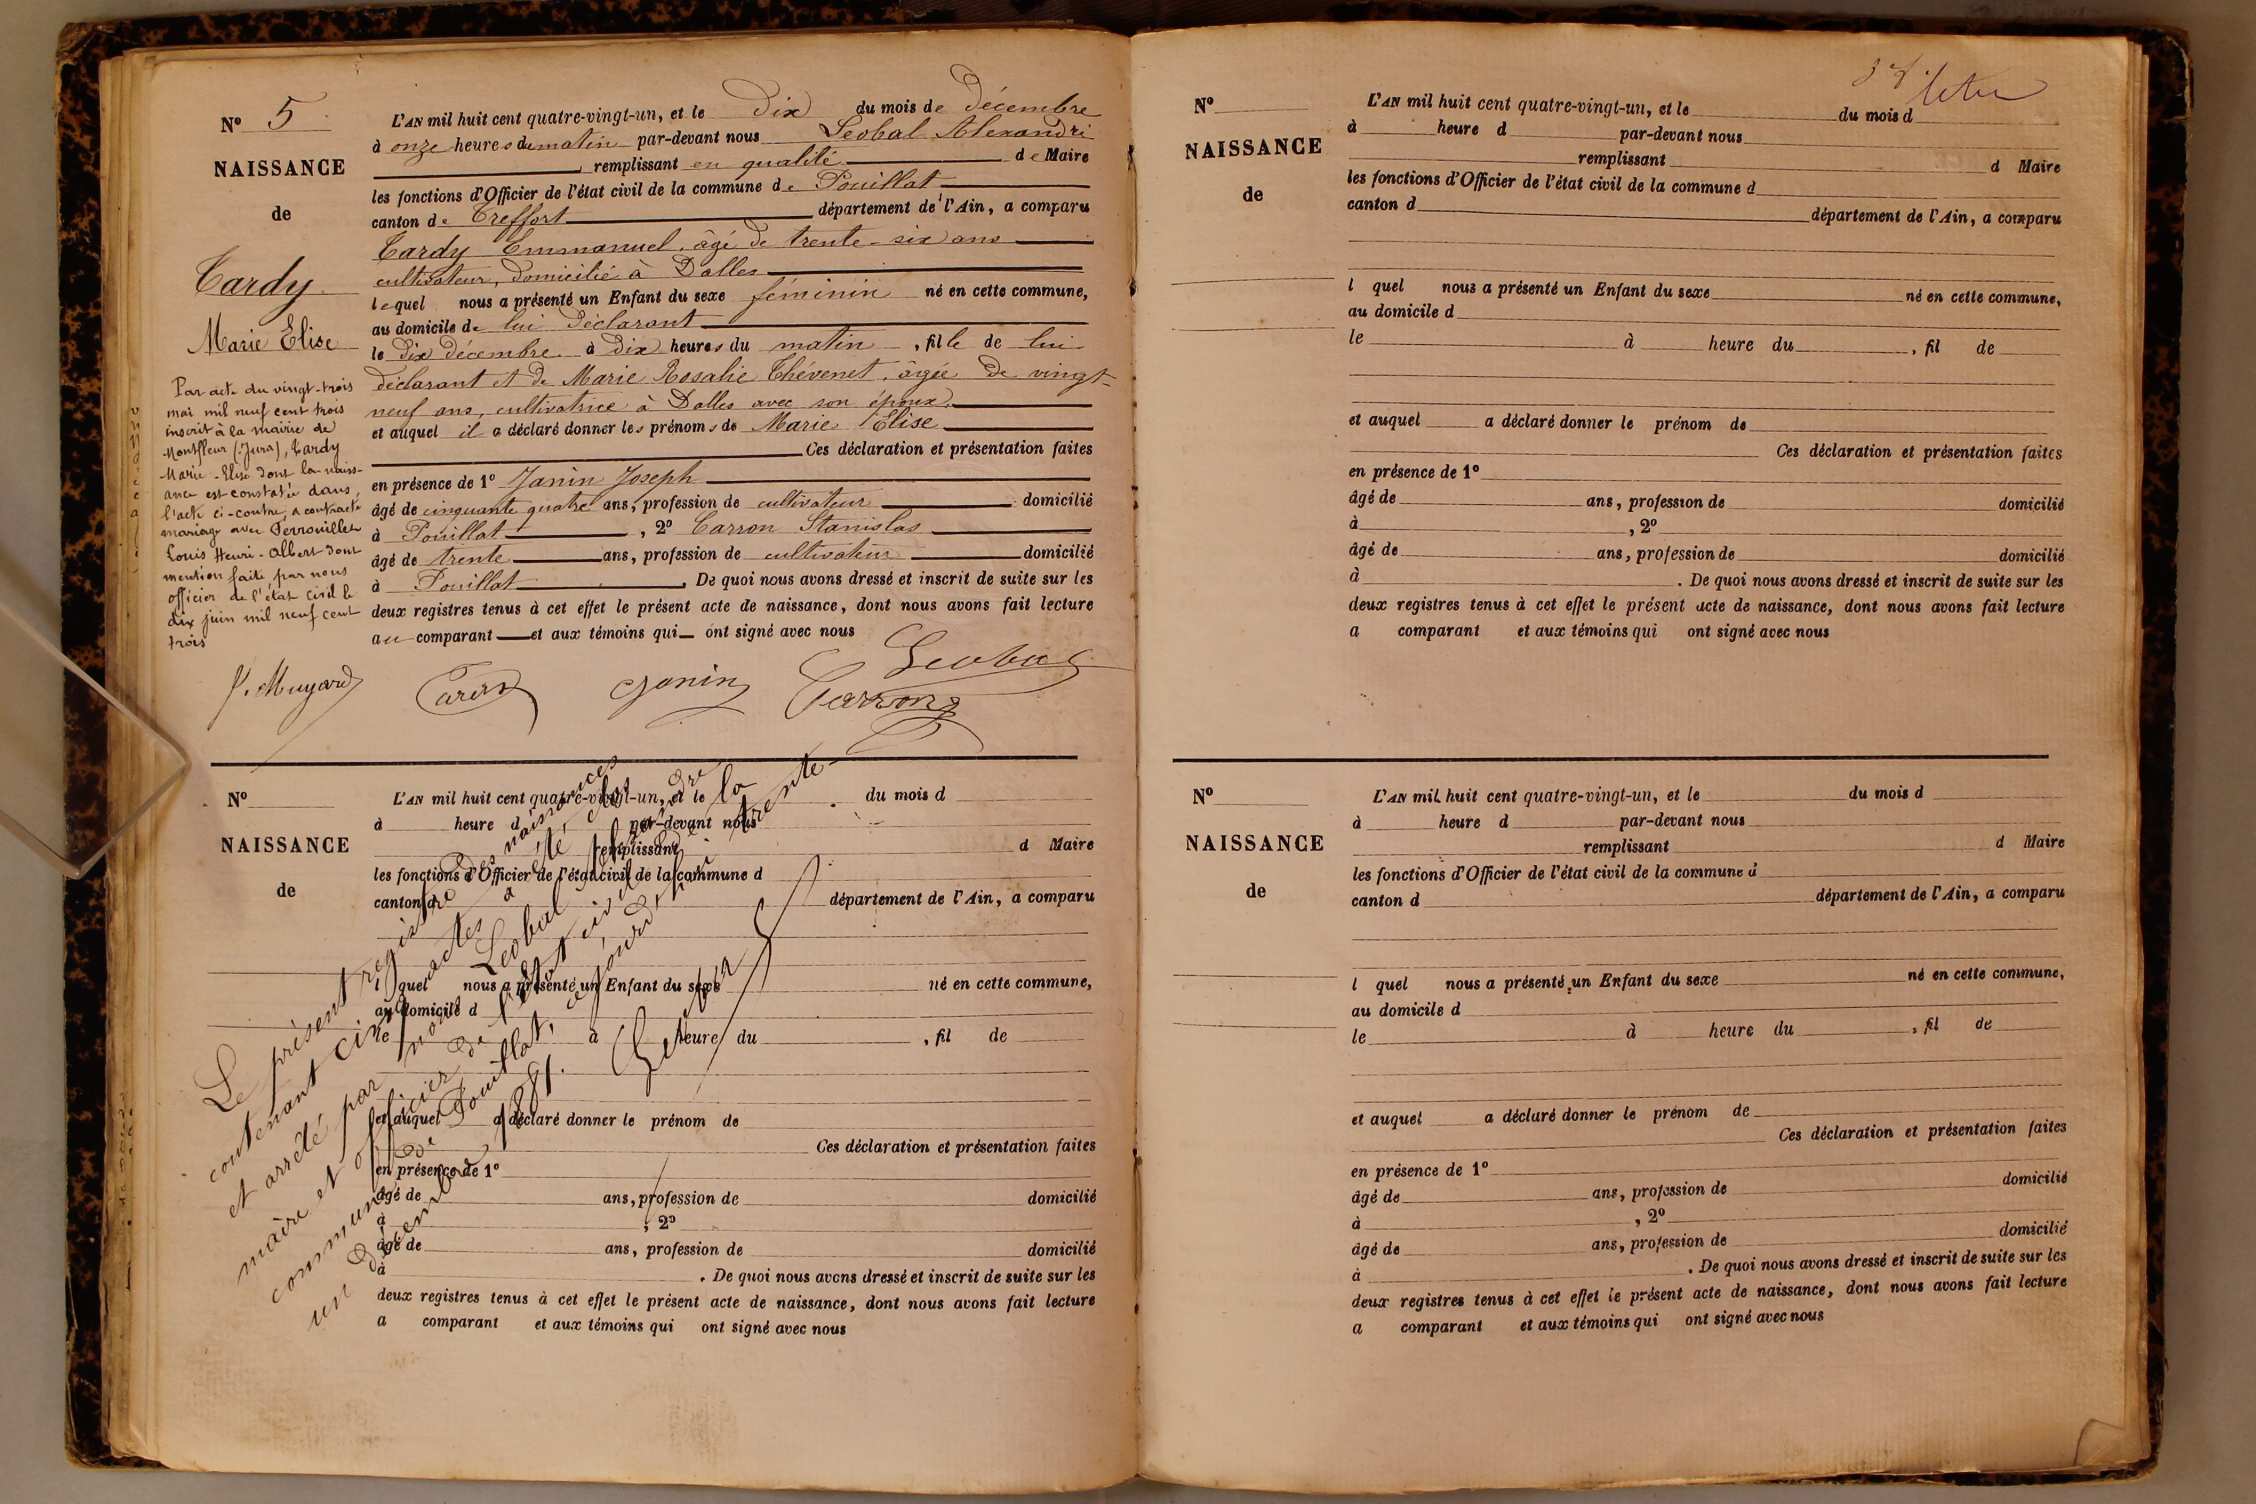 N° 5
NAISSANCE
de
Tardy
Marie Elise
Par acte du vingt-trois
mai mil neuf cent trois
inscrit à la mairie de
Montfleur (Jura), Tardy
Marie-Elise dont la naiss-
ance est constatée dans
l'acte ci-contre, a contracté
mariage avec Perrouillet
Louis Henri-Albert dont
mention faite par nous
officier de l'état civil le
dix juin mil neuf cent
trois
L'AN mil huit cent quatre-vingt-un, et le Dix du mois de Décembre
à onze heures du matin par-devant nous Leobal Alexandre
remplissant en qualité de Maire
les fonctions d'Officier de l'état civil de la commune de Pouillat
canton de Treffort département de l'Ain, a comparu
Tardy Emmanuel, âgé de trente-six ans
cultivateur, domicilié à Dalles
lequel nous a présenté un Enfant du sexe féminin né en cette commune,
au domicile de lui déclarant
le Dix décembre à Dix heures du matin, fille de lui
déclarant et de Marie Rosalie Thévenet, âgée de vingt-
neuf ans, cultivatrice à Dalles avec son époux
et auquel il a déclaré donner les prénoms de Marie Elise
Ces déclaration et présentation faites
en présence de 1° Janin Joseph
âgé de cinquante quatre ans, profession de cultivateur domicilié
à Pouillat, 2° Carron Stanislas
âgé de trente ans, profession de cultivateur domicilié
à Pouillat. De quoi nous avons dressé et inscrit de suite sur les
deux registres tenus à cet effet le présent acte de naissance, dont nous avons fait lecture
au comparant et aux témoins qui ont signé avec nous
Leobal
Muyard Tardy Janin Carron
N°
NAISSANCE
de
L'AN mil huit cent quatre-vingt-un, et le du mois d
à heure d par-devant nous
remplissant d Maire
les fonctions d'Officier de l'état civil de la commune d
canton d département de l'Ain, a comparu
l quel nous a présenté un Enfant du sexe né en cette commune,
au domicile d
le à heure du , fil de
et auquel a déclaré donner le prénom de
Ces déclaration et présentation faites
en présence de 1°
âgé de ans, profession de domicilié
à , 2°
âgé de ans, profession de domicilié
à . De quoi nous avons dressé et inscrit de suite sur les
deux registres tenus à cet effet le présent acte de naissance, dont nous avons fait lecture
a comparant et aux témoins qui ont signé avec nous
Le présent registre des naissances
contenant cinq actes a été clos
et arrêté par nous Leobal Alexandre
maire et officier de l'état civil de la
commune de Pouillat, ce jourd'hui trente-
un décembre 1881.
N°
NAISSANCE
de
L'AN mil huit cent quatre-vingt-un, et le du mois d
à heure d par-devant nous
remplissant d Maire
les fonctions d'Officier de l'état civil de la commune d
canton d département de l'Ain, a comparu
l quel nous a présenté un Enfant du sexe né en cette commune,
au domicile d
le à heure du , fil de
et auquel a déclaré donner le prénom de
Ces déclaration et présentation faites
en présence de 1°
âgé de ans, profession de domicilié
à , 2°
âgé de ans, profession de domicilié
à . De quoi nous avons dressé et inscrit de suite sur les
deux registres tenus à cet effet le présent acte de naissance, dont nous avons fait lecture
a comparant et aux témoins qui ont signé avec nous
N°
NAISSANCE
de
L'AN mil huit cent quatre-vingt-un, et le du mois d
à heure d par-devant nous
remplissant d Maire
les fonctions d'Officier de l'état civil de la commune d
canton d département de l'Ain, a comparu
l quel nous a présenté un Enfant du sexe né en cette commune,
au domicile d
le à heure du , fil de
et auquel a déclaré donner le prénom de
Ces déclaration et présentation faites
en présence de 1°
âgé de ans, profession de domicilié
à , 2°
âgé de ans, profession de domicilié
à . De quoi nous avons dressé et inscrit de suite sur les
deux registres tenus à cet effet le présent acte de naissance, dont nous avons fait lecture
a comparant et aux témoins qui ont signé avec nous